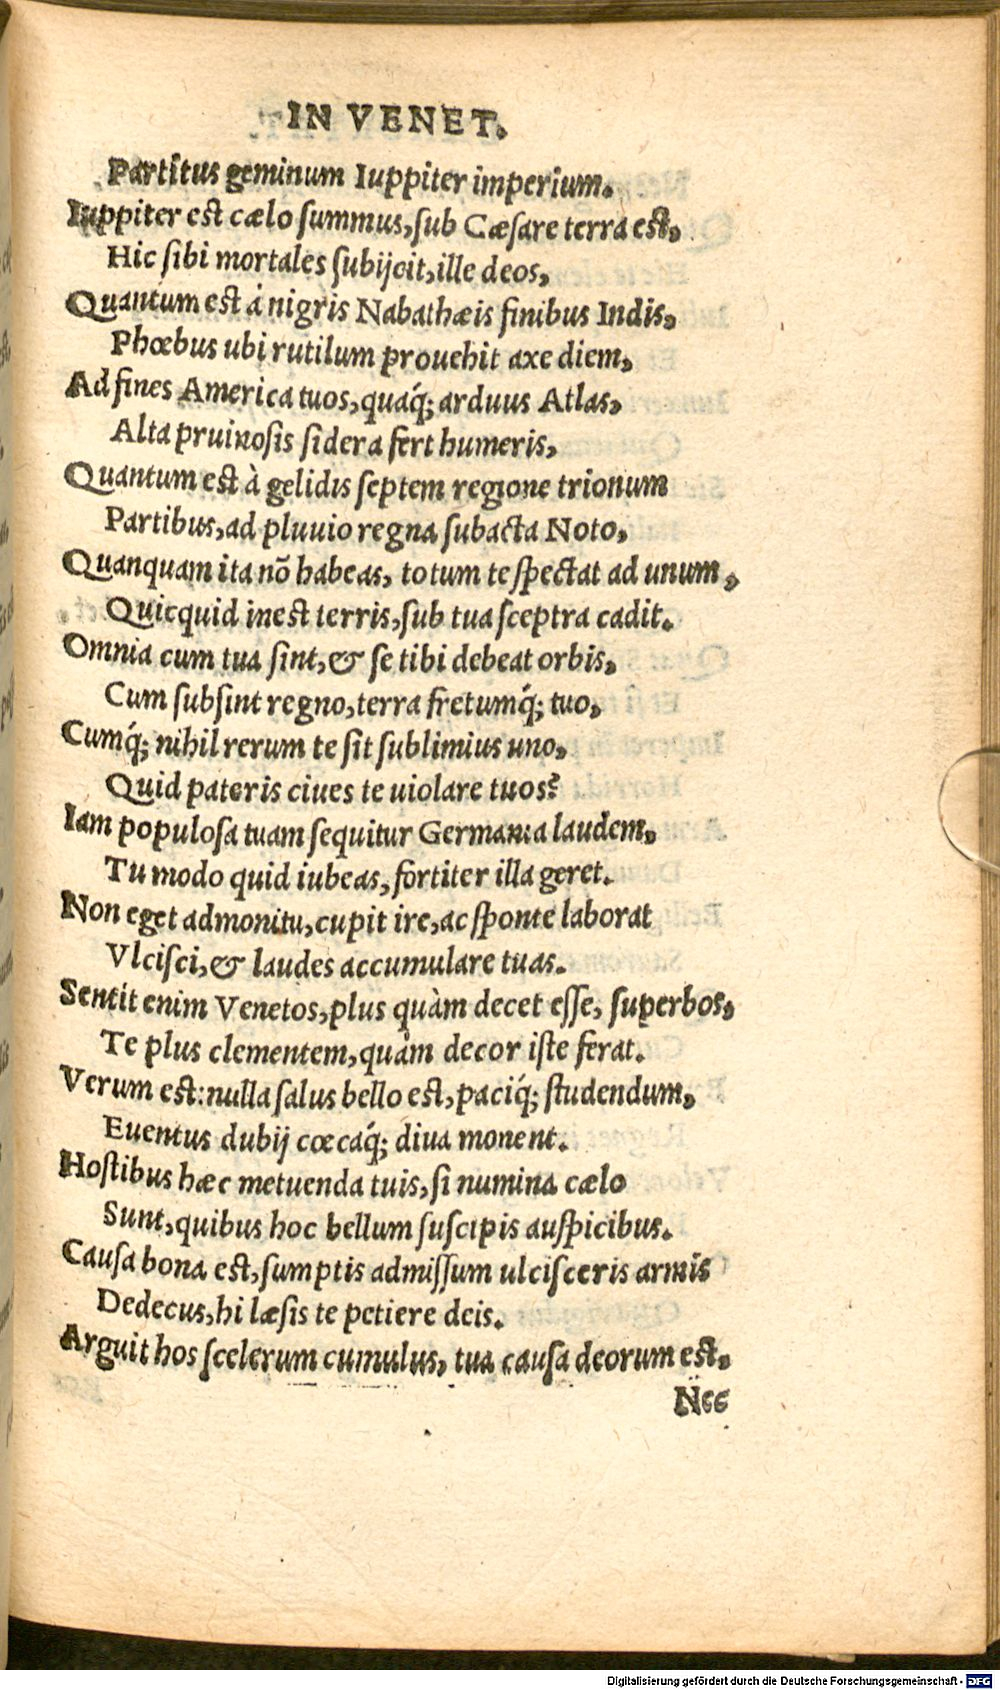 IN VENET.
Partitus geminum Iuppiter imperium.
Iuppiter est cælo summus, sub Cæsare terra est,
Hic sibi mortales subijcit, ille deos,
Quantum est á nigris Nabathæis finibus Indis,
Phœbus ubi rutilum prouehit axe diem,
Ad fines America tuos, quaq́; arduus Atlas,
Alta pruinosis sidera fert humeris,
Quantum est à gelidis septem regione trionum
Partibus, ad pluuio regna subacta Noto,
Quanquam ita nõ habeas, totum te spectat ad unum,
Quicquid inest terris, sub tua sceptra cadit.
Omnia cum tua sint, & se tibi debeat orbis,
Cum subsint regno, terra fretumq́; tuo,
Cumq́; nihil rerum te sit sublimius uno,
Quid pateris ciues te uiolare tuos?
Iam populosa tuam sequitur Germania laudem,
Tu modo quid iubeas, fortiter illa geret.
Non eget admonitu, cupit ire, ac sponte laborat
Vlcisci, & laudes accumulare tuas.
Sentit enim Venetos, plus quàm decet esse, superbos,
Te plus clementem, quàm decor iste ferat.
Verum est: nulla salus bello est, paciq́; studendum,
Euentus dubij cœcaq́; diua monent.
Hostibus hæc metuenda tuis, si numina cælo
Sunt, quibus hoc bellum suscipis auspicibus.
Causa bona est, sumptis admissum ulcisceris armis
Dedecus, hi læsis te petiere deis.
Arguit hos scelerum cumulus, tua causa deorum est,
Nec
Digitalisierung gefördert durch die Deutsche Forschungsgemeinschaft - DFG